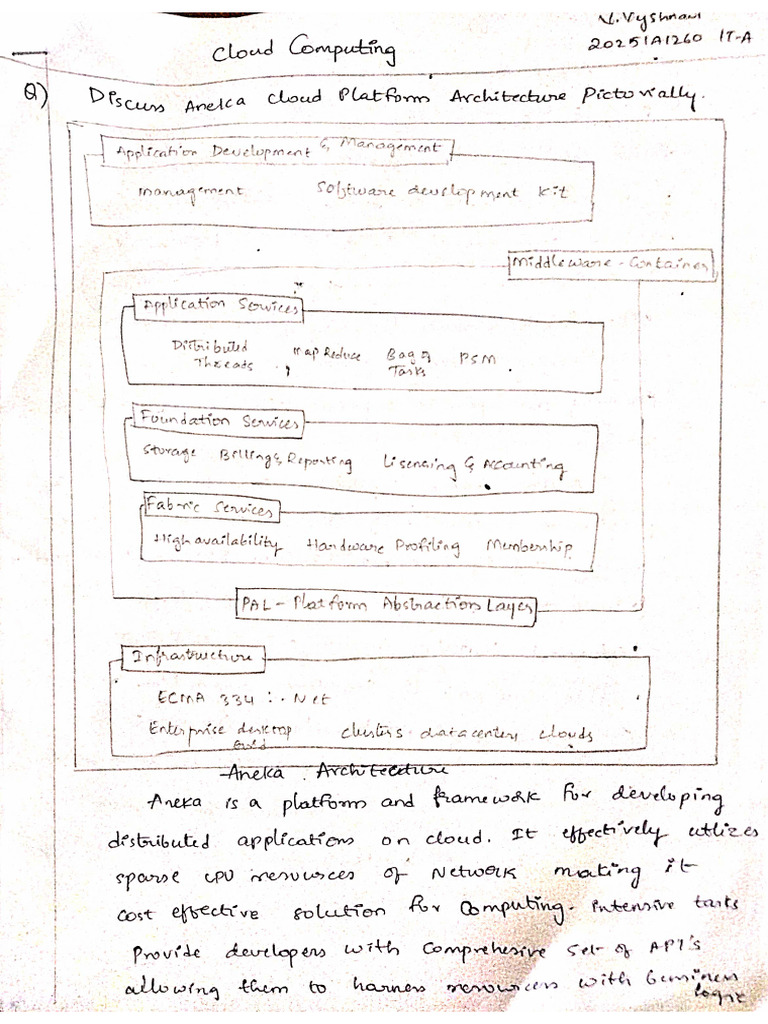 V. Vyshnavi
20251A1260 IT-A
Cloud Computing
Q) Discuss Aneka Cloud Platform Architecture Pictorially.
Application Development & Management
Management Software development kit
Middleware - Container
Application Services
Distributed Threads , Map Reduce Bag of Tasks PSM .
Foundation Services
Storage Billing & Reporting Lisensing & Accounting
Fabric Services
High availability Hardware Profiling Membership
PAL - Platform Abstraction Layer
Infrastructure
ECMA 334 : . Net
Enterprise desktop Grid clusters . datacenters clouds
Aneka . Architecture
Aneka is a platform and framework for developing
distributed applications on cloud. It effectively utlizes
sparse CPU resources of Network making it
cost effective solution for Computing - Intensive tasks
Provide developers with Comprehesive Set of API's
allowing them to harness resources with
logic